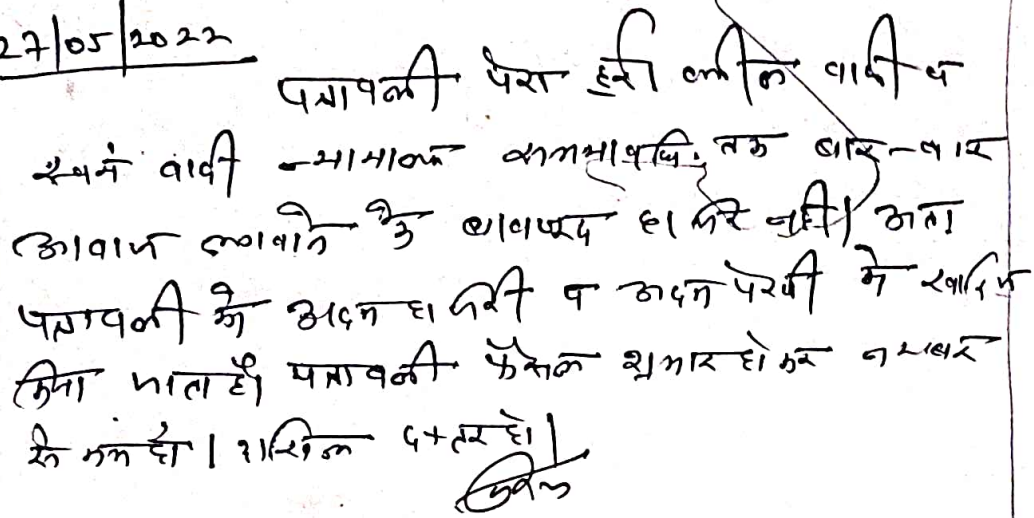 27/05/2022
पत्रावली पेश हुई वकील वादी व
स्वयं वादी न्यायालय समयावधि तक बार-बार
आवाज लगवाने के बावजूद हाजिर नही। अतः
पत्रावली को अदम हाजरी व अदम पेरवी मे खारिज
किया जाता है। पत्रावली फैसल शुमार होकर नम्बर
से कम हो। दाखिल दफ्तर हो।